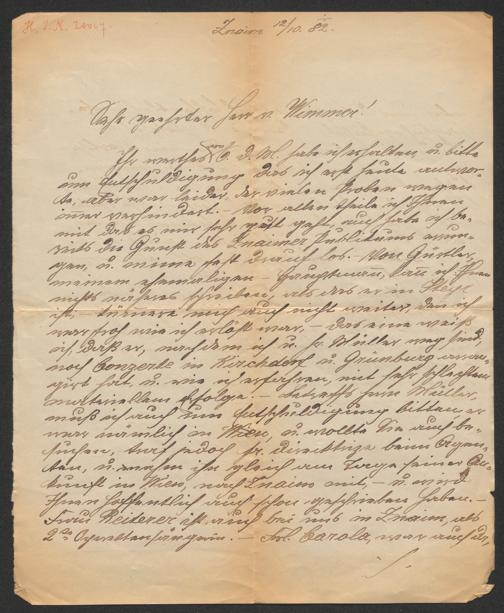 Znaim 12/10. 82.
Sehr geehrter Herr v. Wimmer!
Ihr werthes vom 6. d. M. habe ich erhalten, u. bitte
um Entschuldigung das ich erst heute antwor-
te, aber war leider, der vielen Proben wegen
immer verhindert. – Vor allem theile ich Ihnen
mit das es mir sehr gut geht, auch habe ich be-
reits die Gunst des Znaimer Publikums errun-
gen, u. mime fest drauf los. – Von
meinem ehemaligen – Hauptmann, kann ich Ihnen
nichts näheres schreiben, als das er in
ist, mich auch nicht weiter, den ich
war froh wie ich erlöst war, – das eine weiß
ich, daß er, nachdem ich u. Fr. Müller weg sind,
noch Conzerte in Kirchdorf u. Grünburg arran-
girt hat, u. wie ich erfahren, mit sehr schlechten
materiellem Erfolge. – Betreffs Frln Müller,
muß ich auch um Entschuldigung bitten, er
war nämlich in Wien, u. wollte Sie auch be-
suchen, traf jedoch beim Agen-
ten, u. nahm ihn gleich am Tage seiner An-
kunft in Wien, nach Znaim mit, – u. wird
Ihnen hoffentlich auch schon geschrieben haben. –
Frau Reiterer ist auch bei uns in Znaim, als
2te Operettensängerin. – Frl. Carola, war auch da,